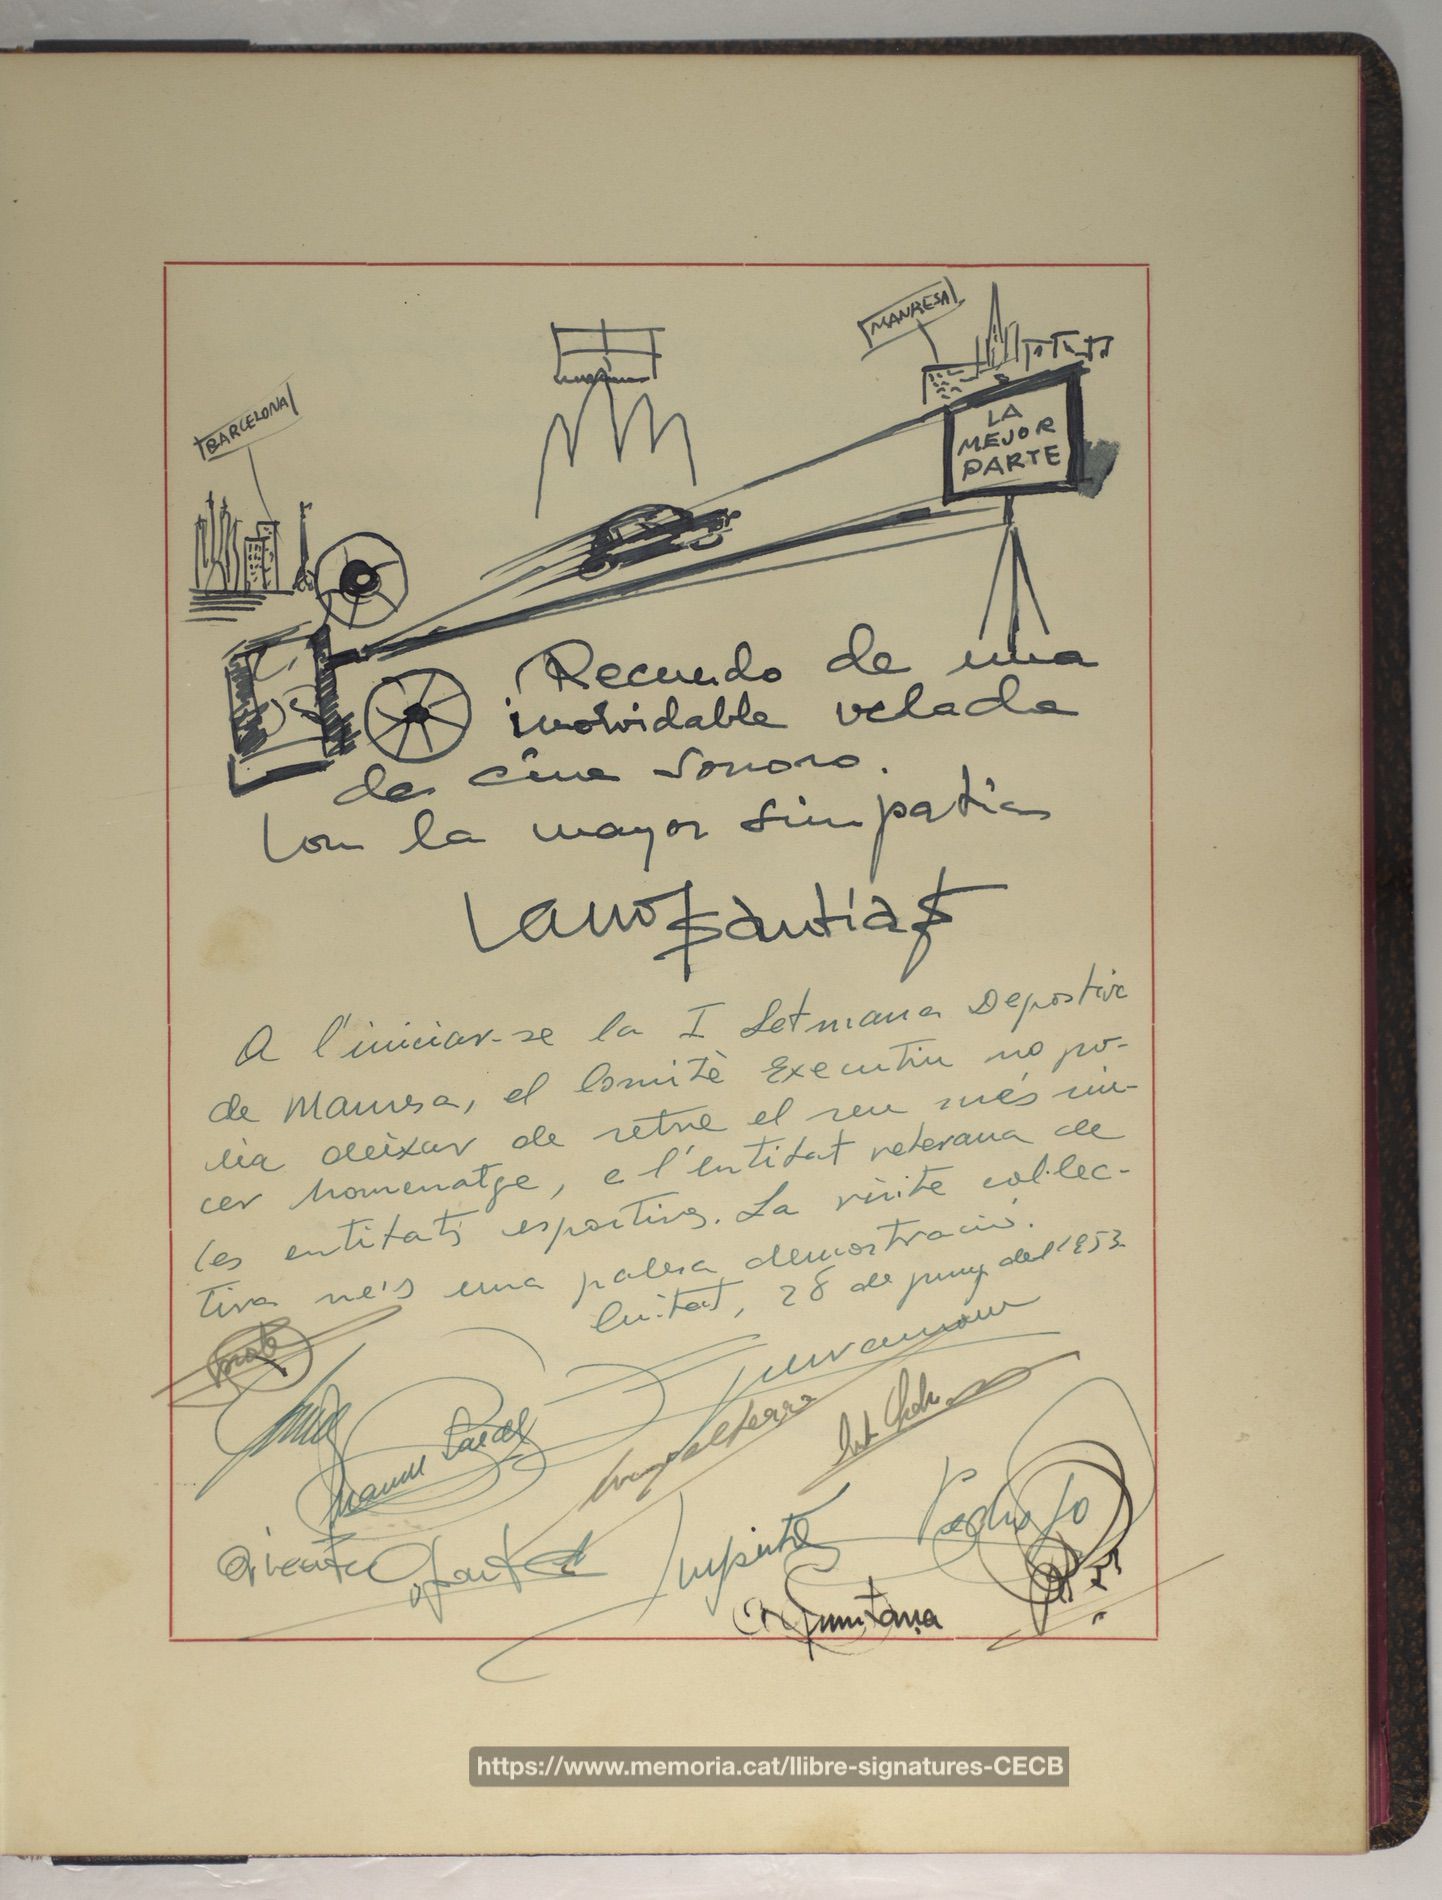 BARCELONA
MANRESA
LA
MEJOR
PARTE
Recuerdo de una
inolvidable velada
de cine sonoro.
Con la mayor simpatia
A l'iniciar-se la I Setmana Deportiva
de Manresa, el Comitè Executiu no po-
dia deixar de retre el seu més sin-
cer homenatge, a l'entitat veterana de
les entitats esportives. La visita col·lec-
tiva n'és una palesa demostració.
Ciutat, 28 de juny del 1953
Manuel
Quintana
https://www.memoria.cat/llibre-signatures-CECB